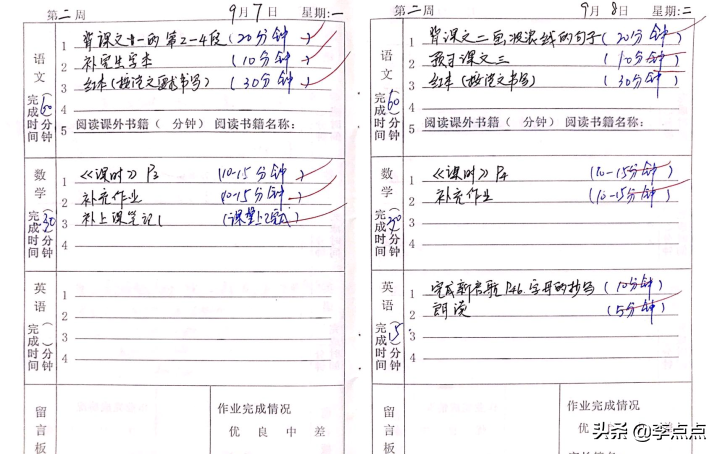 第二周 9月7日 星期:一
语文 完成时间(60)分钟
1 背课文十一的第2-4段(20分钟)
2 补写生字本(10分钟)
3 红本(按范文要求书写)(30分钟)
4
5 阅读课外书籍( 分钟) 阅读书籍名称:
数学 完成时间(30)分钟
1 《课时》P3 (10-15分钟)
2 补充作业 (10-15分钟)
3 补上课笔记 (课堂上
4
英语 完成时间( )分钟
1
2
3
4
留言板
作业完成情况
优 良 中 差
第二周 9月8日 星期:二
语文 完成时间(60)分钟
1 背课文二画波浪线的句子(20分钟)
2 预习课文三 (10分钟)
3 红本(按范文书写)(30分钟)
4
5 阅读课外书籍( 分钟) 阅读书籍名称:
数学 完成时间(30)分钟
1 《课时》P4 (10-15分钟)
2 补充作业 (10-15分钟)
3
4
英语 完成时间(15)分钟
1 完成新 P46.字母的抄写(10分钟)
2 朗读 (5分钟)
3
4
留言板
作业完成情况
优 良
头条 @李点点